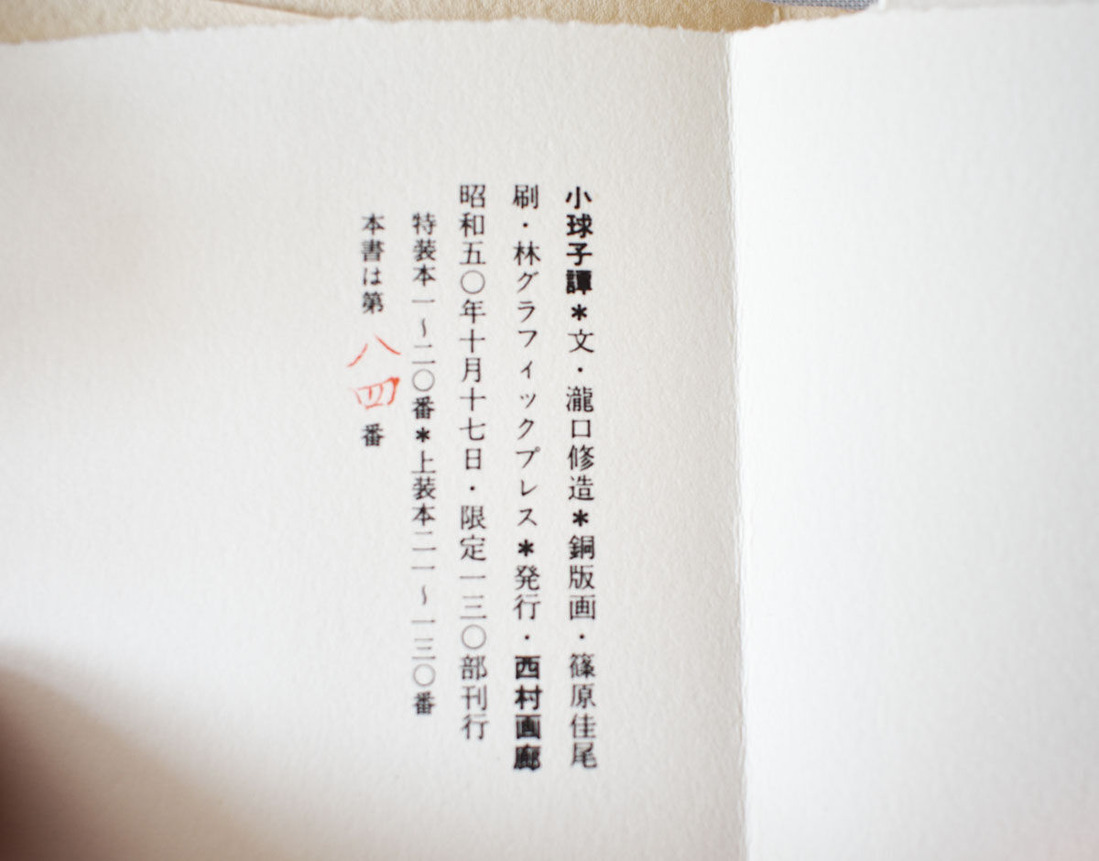 小球子譚＊文・瀧口修造＊銅版画・篠原佳尾
刷・林グラフィックプレス＊発行・西村画廊
昭和五〇年十月十七日・限定一三〇部刊行
特装本一～二〇番＊上装本二一～一三〇番
本書は第八四番